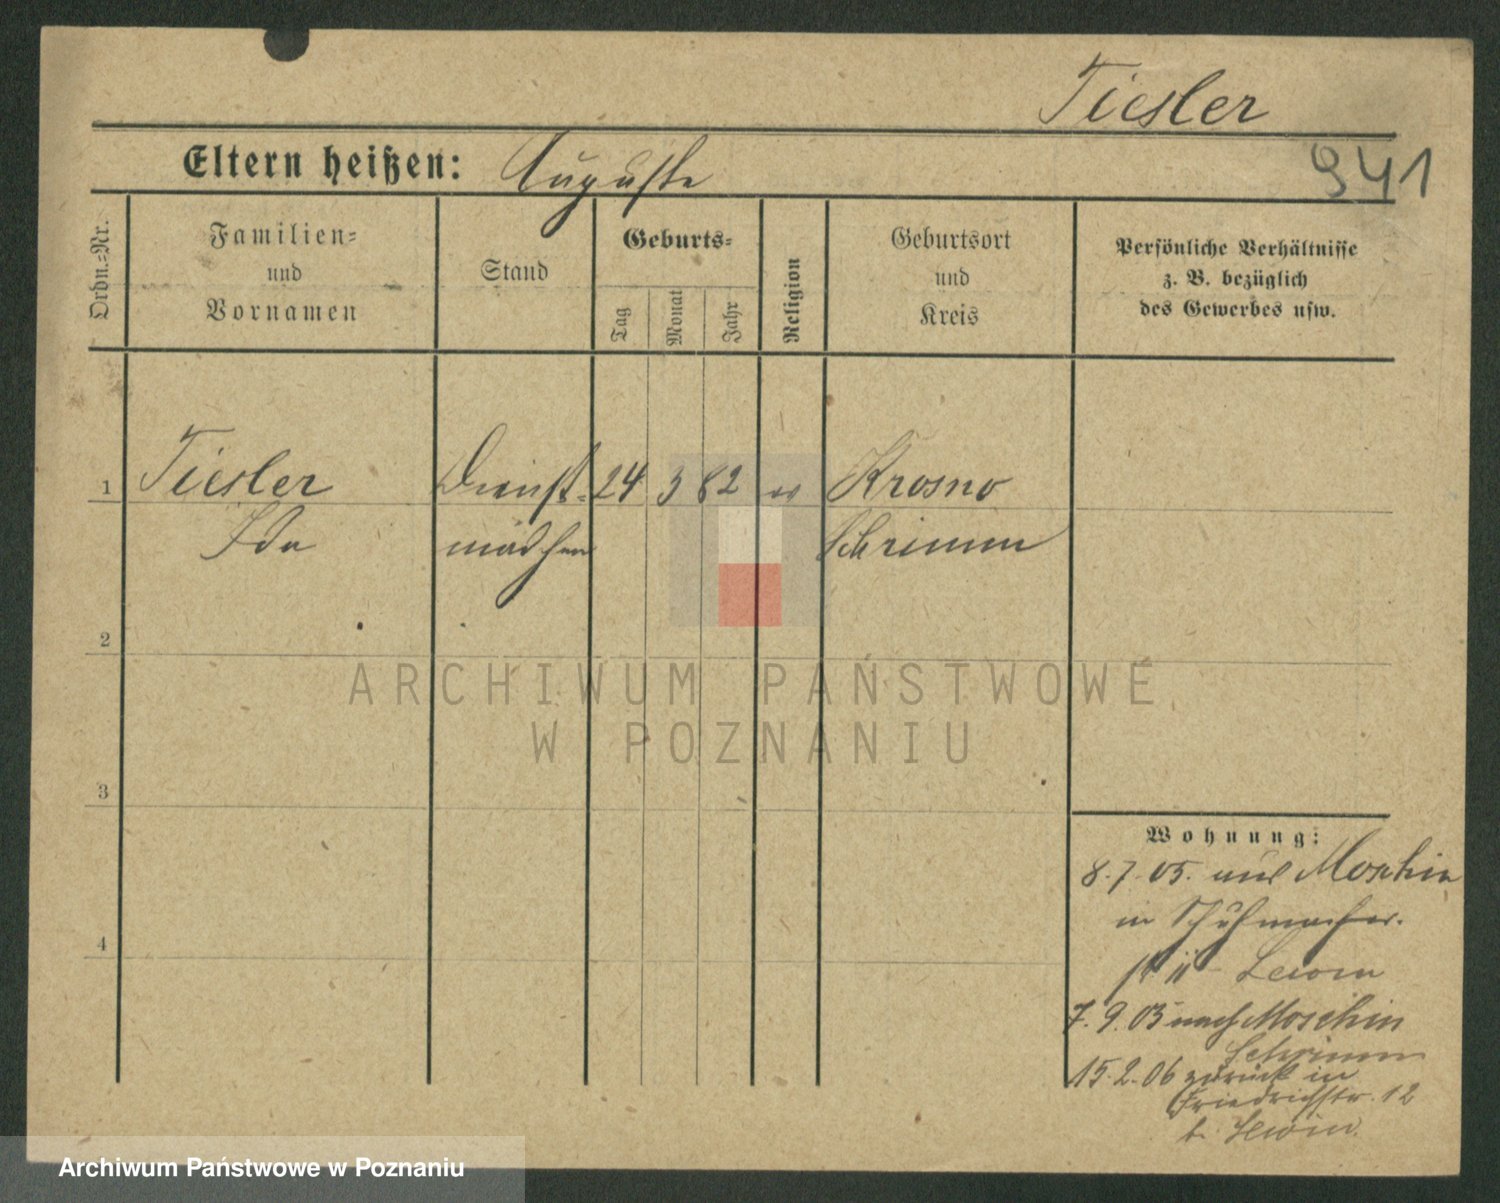 Tiesler
Eltern heißen: Auguste
941
Ordn.=Nr.
Familien=
und
Vornamen
Stand
Geburts=
Tag
Monat
Jahr
Religion
Geburtsort
und
Kreis
Persönliche Verhältnisse
z. B. bezüglich
des Gewerbes usw.
1 Tiesler Dienst= 24 3 82 ev Krosno
Ida mädchen Schrimm
2
3
4
Wohnung:
8.7.05. aus Moschin
in Schuhmacher.
str 11 Lewin
7.9.05 nach Moschin
Schrimm
15.2.06 zurück in
Friedrichstr. 12
b. Lewin.
ARCHIWUM PAŃSTWOWE
W POZNANIU
Archiwum Państwowe w Poznaniu